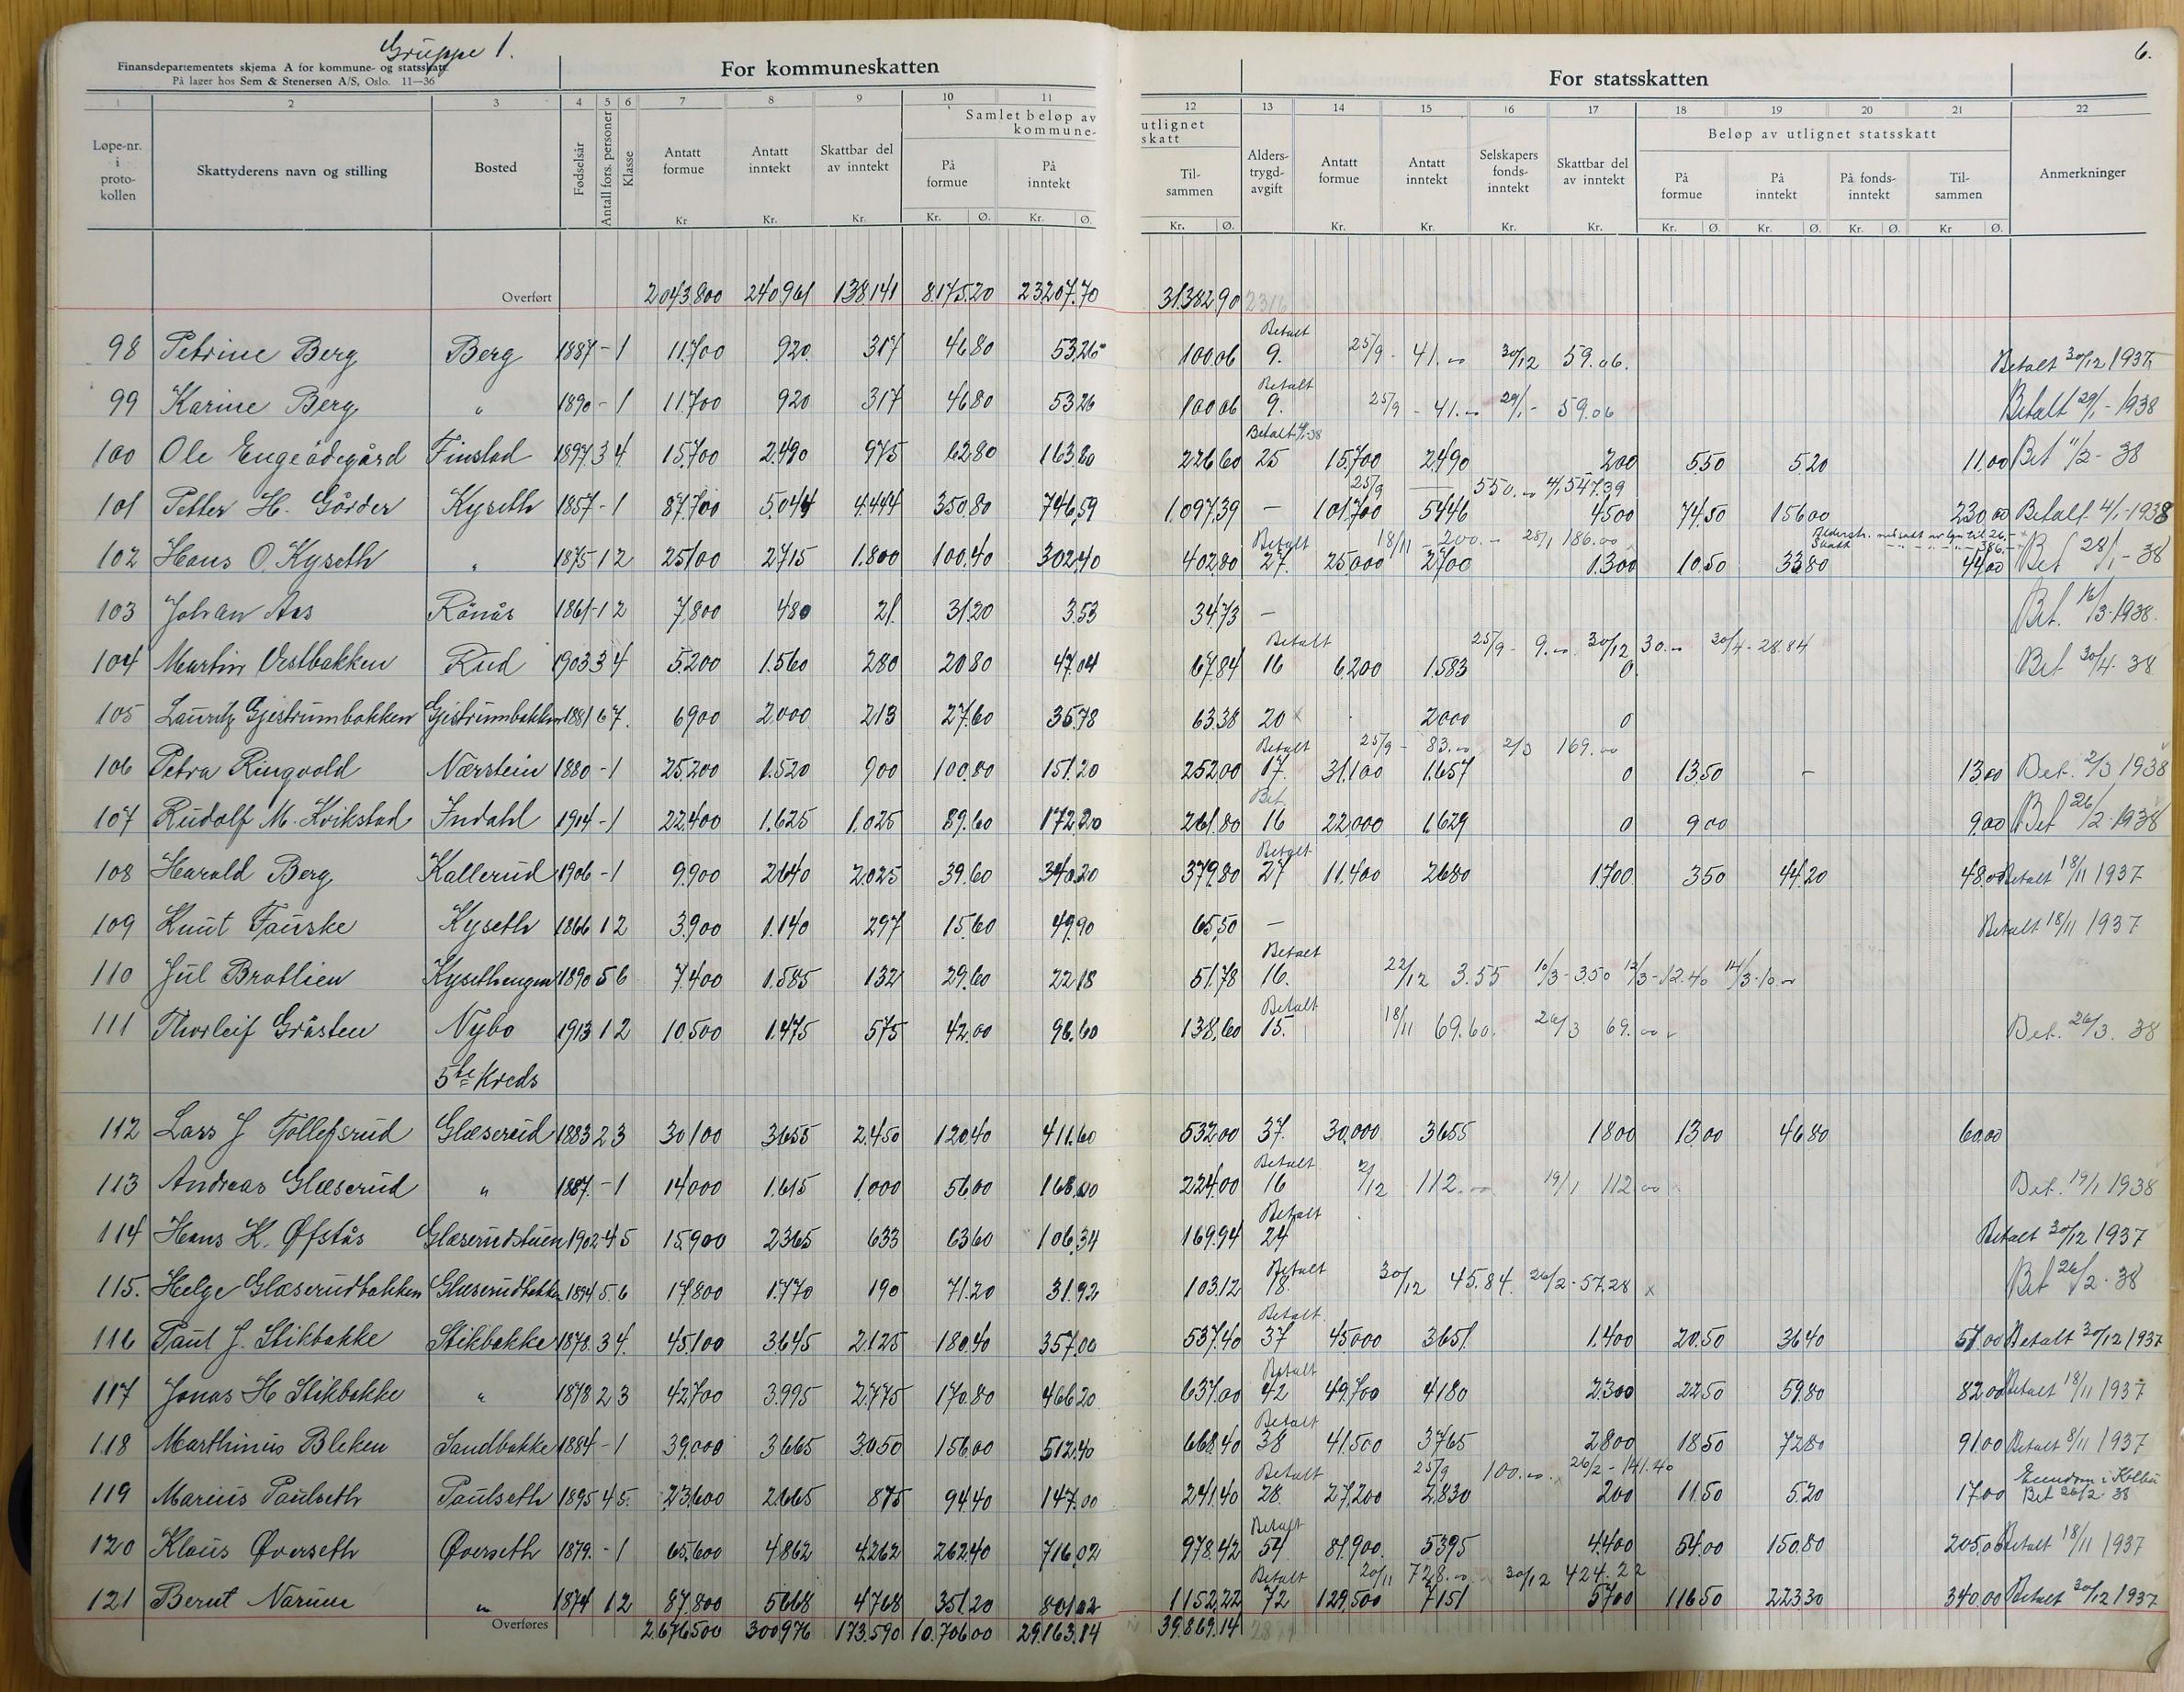 Gruppe 1.
6.
Finansdepartementets skjema A for kommune- og statsskatt.
På lager hos Sem & Stenersen A/S, Oslo. 11—36
For kommuneskatten
For statsskatten
1 2 3 4 5 6 7 8 9 10 11 12 13 14 15 16 17 18 19 20 21 22
Løpe-nr. i proto-kollen
Skattyderens navn og stilling
Bosted
Fødselsår
Antall fors. personer
Klasse
Antatt formue Kr
Antatt inntekt Kr.
Skattbar del av inntekt Kr.
Samlet beløp av utlignet kommune-skatt
På formue Kr. Ø.
På inntekt Kr. Ø.
Til-sammen Kr. Ø.
Alders-trygd-avgift
Antatt formue Kr.
Antatt inntekt Kr.
Selskapers fonds-inntekt Kr.
Skattbar del av inntekt Kr.
Beløp av utlignet statsskatt
På formue Kr. Ø.
På inntekt Kr. Ø.
På fonds-inntekt Kr. Ø.
Til-sammen Kr Ø.
Anmerkninger
Overført 2043800 240961 138141 8175.20 23207.70 31382.90 2316
Betalt
98 Petrine Berg Berg 1887 - 1 11700 920 317 46.80 53.26 100.06 9. 25/9 - 41.00 30/12 59.06. Betalt 30/12 1937
Betalt
99 Karine Berg " 1890 - 1 11700 920 317 46.80 53.26 100.06 9. 25/9 - 41.00 29/1 - 59.06 Betalt 29/1 - 1938
100 Ole Engeødegård Finstad 1897 3 4 15.700 2.490 975 62.80 163.80 226.60 25 15.700 2490 200 5.50 5.20 11.00 Bet 11/2 - 38
25/9 550.00 4/1 547.39
101 Petter H. Gårder Kyseth 1857 - 1 87.700 5.044 4.444 350.80 746.59 1.097.39 - 101.700 5446 4500 74.50 156.00 230.00 Betalt 4/1 - 1938
Betalt 18/11 200.- 28/1 186.00
102 Hans O. Kyseth " 1875 1 2 25100 2715 1.800 100.40 302.40 402.80 27. 25.000 2700 1.300 10.50 33.80 44.00 Bet 28/1 - 38
103 Johan Aas Rönås 1861 - 1 2 7.800 480 21. 31.20 3.53 34.73 - Bet. 16/3 - 1938.
Betalt 25/9 - 9.00 30/12 30.00 30/4 - 28.84
104 Martin Vestbakken Rud 1903 3 4 5.200 1.560 280 20.80 47.04 67.84 16 6.200 1.583 0 Bet 30/4. 38
105 Lauritz Gjestrumbakken Gjestrumbakken 1881 6 7. 6900 2.000 213 27.60 35.78 63.38 20 x 2000 0
Betalt 25/9 - 83.00 2/3 169.00
106 Petra Ringvold Nærstein 1880 - 1 25.200 1.520 900 100.80 151.20 252.00 17. 31.100 1.657 0 13.50 - 13.00 Bet. 2/3 1938
Bet.
107 Rudolf M. Kvikstad Indahl 1904 - 1 22.400 1.625 1.025 89.60 172.20 261.80 16 22.000 1.629 0 9.00 9.00 Bet 26/2 - 1938
Betalt
108 Harald Berg Kallerud 1906 - 1 9.900 2640 2.025 39.60 340.20 379.80 27 11.400 2680 1.700 3.50 44.20 48.00 Betalt 18/11 1937
109 Knut Fauske Kyseth 1866 1 2 3.900 1.140 297 15.60 49.90 65.50 - Betalt 18/11 1937
Betalt
110 Jul Bratlien Kysethengen 1890 5 6 7.400 1.585 132 29.60 22.18 51.78 16. 22/12 3.55 10/3 - 3.50 12/3 - 12.40 14/3 - 10.00
Betalt
111 Thorleif Gråsten Nybo 1913 1 2 10.500 1.475 575 42.00 96.60 138.60 15. 18/11 69.60. 26/3 69.00 Bet. 26/3. 38
5te Kreds
112 Lars J Tollefsrud Glæserud 1883 2 3 30100 3655 2.450 120.40 411.60 532.00 37. 30.000 3655 1800 13.00 46.80 60.00
Betalt
113 Andreas Glæserud " 1887. - 1 14000 1.615 1.000 56.00 168.00 224.00 16 2/12 112.00 19/1 112.00 Bet. 19/1 1938
Betalt
114 Hans K. Øfstås Glæserudstuen 1902 4 5 15.900 2365 633 63.60 106.34 169.94 24 Betalt 30/12 1937
Betalt
115. Helge Glæserudbakken Glæserudbakken 1894 5. 6 17.800 1.770 190 71.20 31.92 103.12 18. 30/12 45.84. 26/2 - 57.28 x Bet 26/2 - 38
Betalt
116 Paul J. Stikbakke Stikbakke 1878. 3 4. 45.100 3.645 2.125 180.40 357.00 537.40 37 45000 3651. 1.400 20.50 36.40 57.00 Betalt 30/12 1937
Betalt
117 Jonas H Stikbakke " 1878 2 3 42700 3.995 2.775 170.80 466.20 637.00 42 49.700 4180 2.300 22.50 59.80 82.00 Betalt 18/11 1937
Betalt
118 Marthinius Bleken Sandbakke 1884 - 1 39.000 3.665 3.050 156.00 512.40 668.40 38 41.500 3765 2800 18.50 72.80 91.00 Betalt 8/11 1937
Betalt 25/9 100.00 26/2 - 141.40 Eiendom i Kolbu
119 Marius Paulseth Paulseth 1895 4 5. 23.600 2.665 875 94.40 147.00 241.40 28. 27.200 2.830 200 11.50 5.20 17.00 Bet 26/2 - 38
Betalt
120 Klaus Øverseth Øverseth 1879. - 1 65.600 4.862 4.262 262.40 716.02 978.42 54 81.900. 5395 4.400 54.00 150.80 205.00 Betalt 18/11 1937
Betalt 20/11 728.00 30/12 424.22
121 Bernt Narum " 1874 1 2 87.800 5668 4768 351.20 801.02 1152.22 72 129.500 7151 5700 116.50 223.30 340.00 Betalt 30/12 1937
Overføres 2.676500 300976 173.590 10.706.00 29.163.14 39.869.14